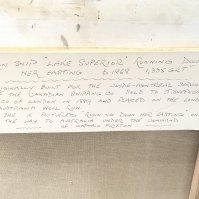 ON SHIP "LAKE SUPERIOR" RUNNING DOWN
HER EASTING B 1868 1,335 GRT
ORIGINALLY BUILT FOR THE MONTREAL SERVICE
OF THE CANADIAN SHIPPING CO. SOLD TO
CO OF LONDON IN 1889 AND PLACED ON THE LONDON
AUSTRALIA WOOL RUN.
SHE IS PICTURED RUNNING DOWN HER EASTING ON
THE WAY TO AUSTRALIA UNDER THE COMMAND
OF